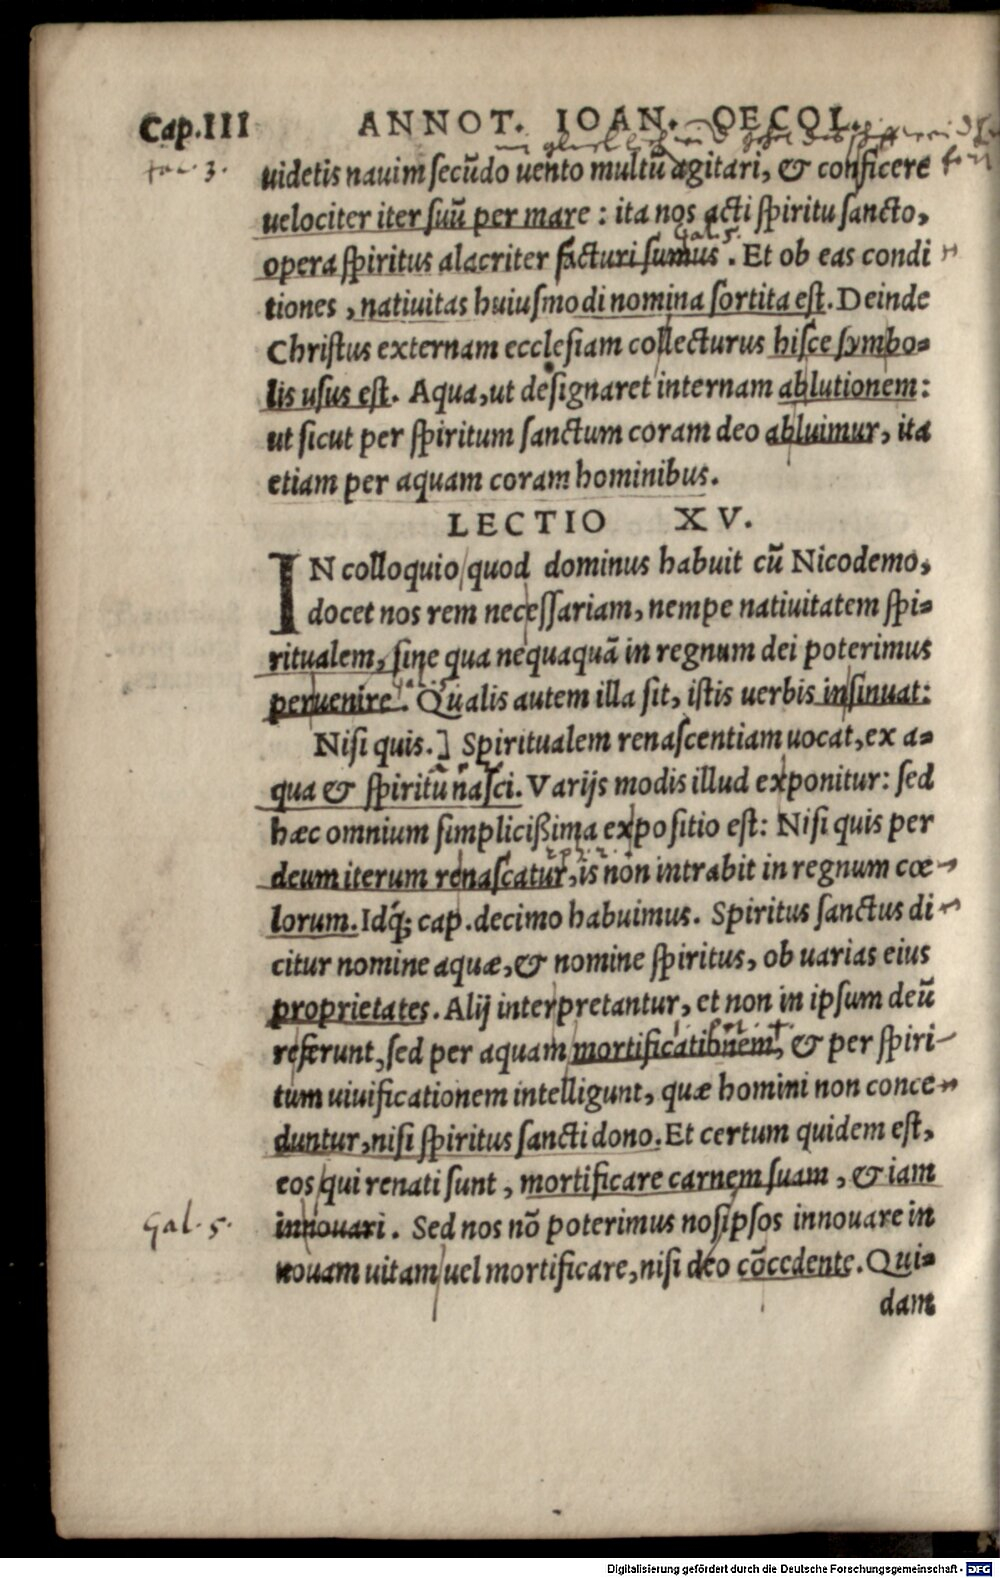 Cap.III ANNOT. IOAN. OECOL.
uidetis nauim secũdo uento multũ agitari, & conficere
uelociter iter suũ per mare : ita nos acti spiritu sancto,
Gal. 5.
opera spiritus alacriter facturi sumus . Et ob eas condi
tiones , natiuitas huiusmodi nomina sortita est. Deinde
Christus externam ecclesiam collecturus hisce symbo=
lis usus est. Aqua, ut designaret internam ablutionem:
ut sicut per spiritum sanctum coram deo abluimur, ita
etiam per aquam coram hominibus.
LECTIO XV.
IN colloquio quod dominus habuit cũ Nicodemo,
docet nos rem necessariam, nempe natiuitatem spi=
ritualem, sine qua nequaquã in regnum dei poterimus
peruenire. Qualis autem illa sit, istis uerbis insinuat:
Nisi quis.] Spiritualem renascentiam uocat, ex a=
qua & spiritu nasci. Varijs modis illud exponitur: sed
hæc omnium simplicißima expositio est: Nisi quis per
deum iterum renascatur, is non intrabit in regnum cœ=
lorum. Idq́; cap. decimo habuimus. Spiritus sanctus di=
citur nomine aquæ, & nomine spiritus, ob uarias eius
proprietates. Alij interpretantur, et non in ipsum deũ
referunt, sed per aquam mortificationem, & per spiri=
tum uiuificationem intelligunt, quæ homini non conce=
duntur, nisi spiritus sancti dono. Et certum quidem est,
eos qui renati sunt , mortificare carnem suam , & iam
Gal. 5. innouari . Sed nos nõ poterimus nosipsos innouare in
nouam uitam uel mortificare, nisi deo cõcedente. Qui=
dam
Digitalisierung gefördert durch die Deutsche Forschungsgemeinschaft - DFG